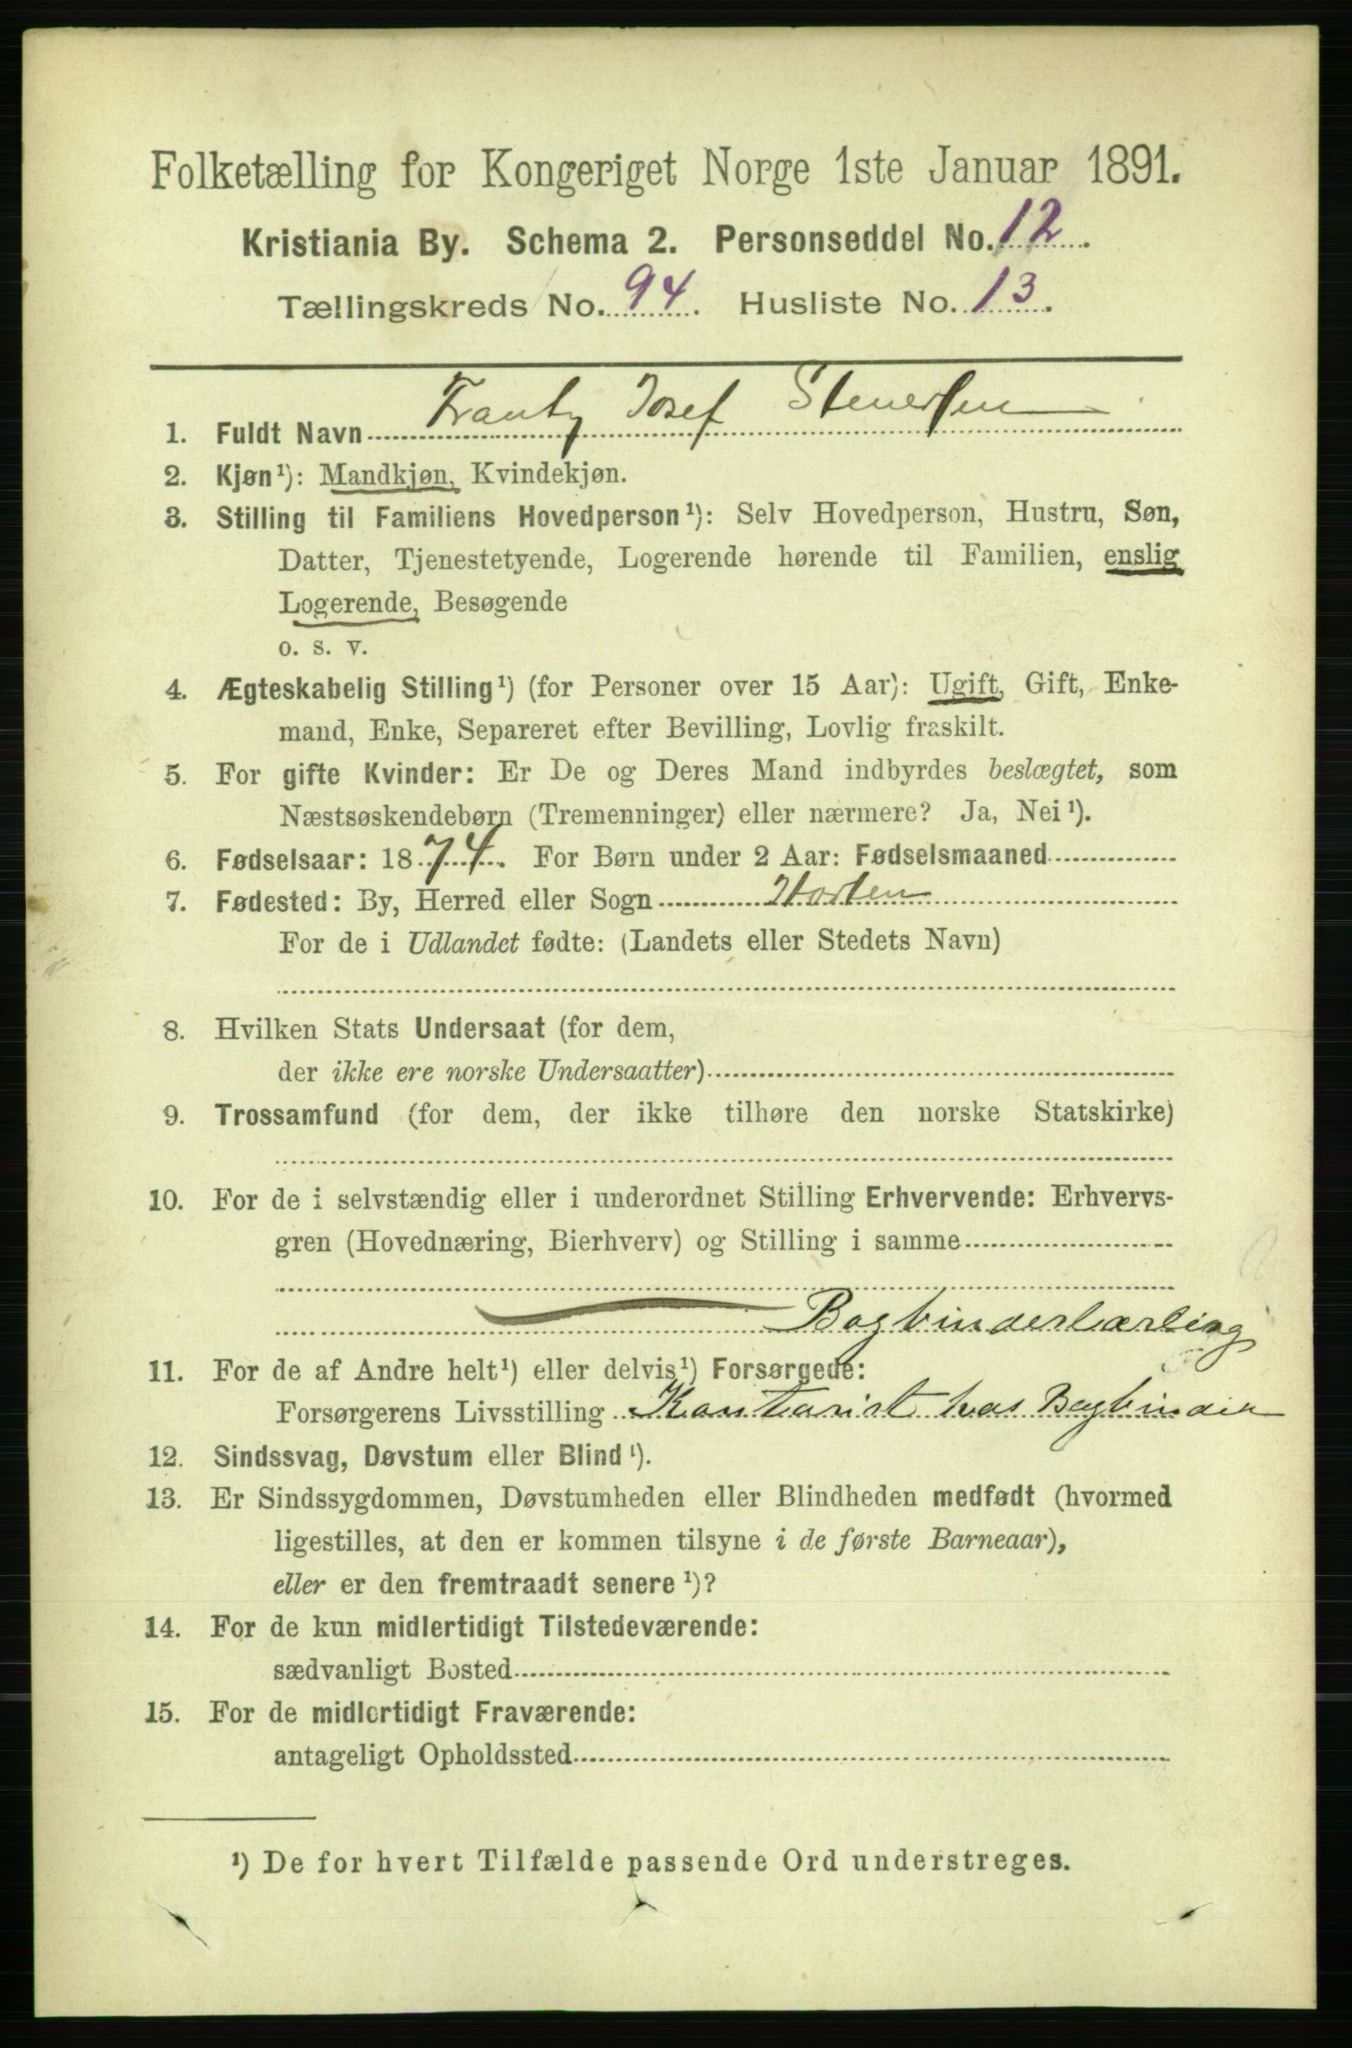 Folketælling for Kongeriget Norge 1ste Januar 1891.
Kristiania By. Schema 2. Personseddel No. 12.
Tællingskreds No. 94. Husliste No. 13.
1. Fuldt Navn Frantz Josef Stenersen
2. Kjøn¹): Mandkjøn, Kvindekjøn.
3. Stilling til Familiens Hovedperson¹): Selv Hovedperson, Hustru, Søn,
Datter, Tjenestetyende, Logerende hørende til Familien, enslig
Logerende, Besøgende
o. s. v.
4. Ægteskabelig Stilling¹) (for Personer over 15 Aar): Ugift, Gift, Enke-
mand, Enke, Separeret efter Bevilling, Lovlig fraskilt.
5. For gifte Kvinder: Er De og Deres Mand indbyrdes beslægtet, som
Næstsøskendebørn (Tremenninger) eller nærmere? Ja, Nei¹).
6. Fødselsaar: 1874. For Børn under 2 Aar: Fødselsmaaned
7. Fødested: By, Herred eller Sogn Horten
For de i Udlandet fødte: (Landets eller Stedets Navn)
8. Hvilken Stats Undersaat (for dem,
der ikke ere norske Undersaatter)
9. Trossamfund (for dem, der ikke tilhøre den norske Statskirke)
10. For de i selvstændig eller i underordnet Stilling Erhvervende: Erhvervs-
gren (Hovednæring, Bierhverv) og Stilling i samme
Bogbinderlærling
11. For de af Andre helt¹) eller delvis¹) Forsørgede:
Forsørgerens Livsstilling Kontorist hos Bogbinder
12. Sindssvag, Døvstum eller Blind¹).
13. Er Sindssygdommen, Døvstumheden eller Blindheden medfødt (hvormed
ligestilles, at den er kommen tilsyne i de første Barneaar),
eller er den fremtraadt senere¹)?
14. For de kun midlertidigt Tilstedeværende:
sædvanligt Bosted
15. For de midlertidigt Fraværende:
antageligt Opholdssted
¹) De for hvert Tilfælde passende Ord understreges.